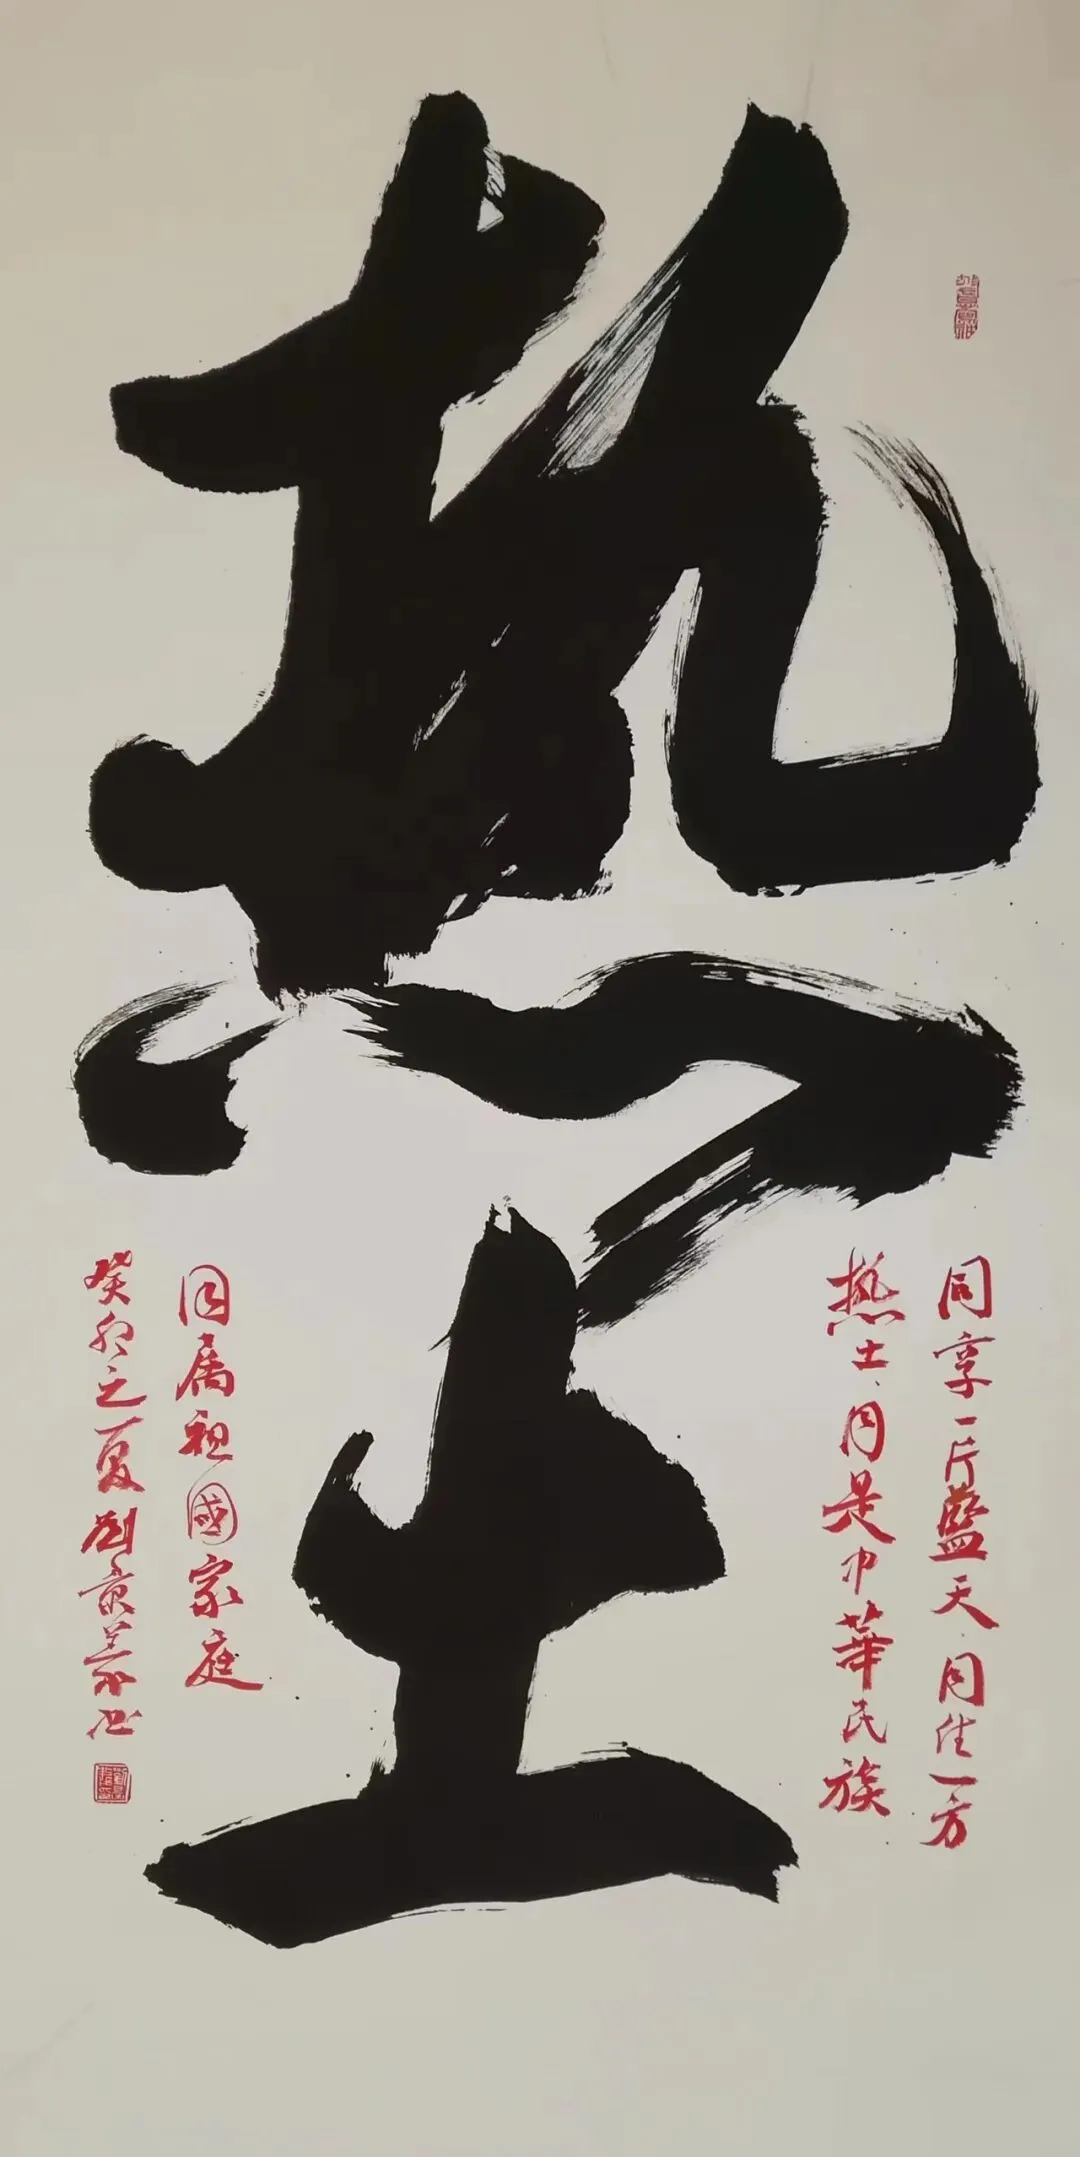 热土
同享一片藍天同住一方
热土同是中華民族
同属祖國家庭
癸卯之夏劉景義书